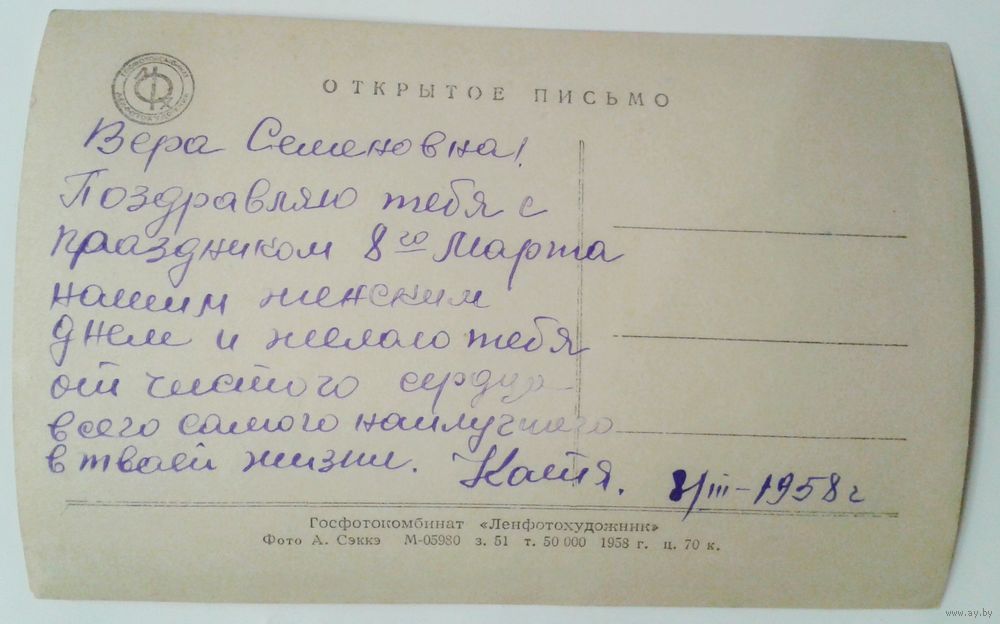 ОТКРЫТОЕ ПИСЬМО
Вера Семеновна!
Поздравляю тебя с
праздником 8го Марта
нашим женским
днем и желаю тебя
от чистого сердца
всего самого наилучшего
в тваей жизни. Катя. 8/III-1958 г
Госфотокомбинат «Ленфотохудожник»
Фото А. Сэккэ М-05980 з. 51 т. 50 000 1958 г. ц. 70 к.
www.ay.by